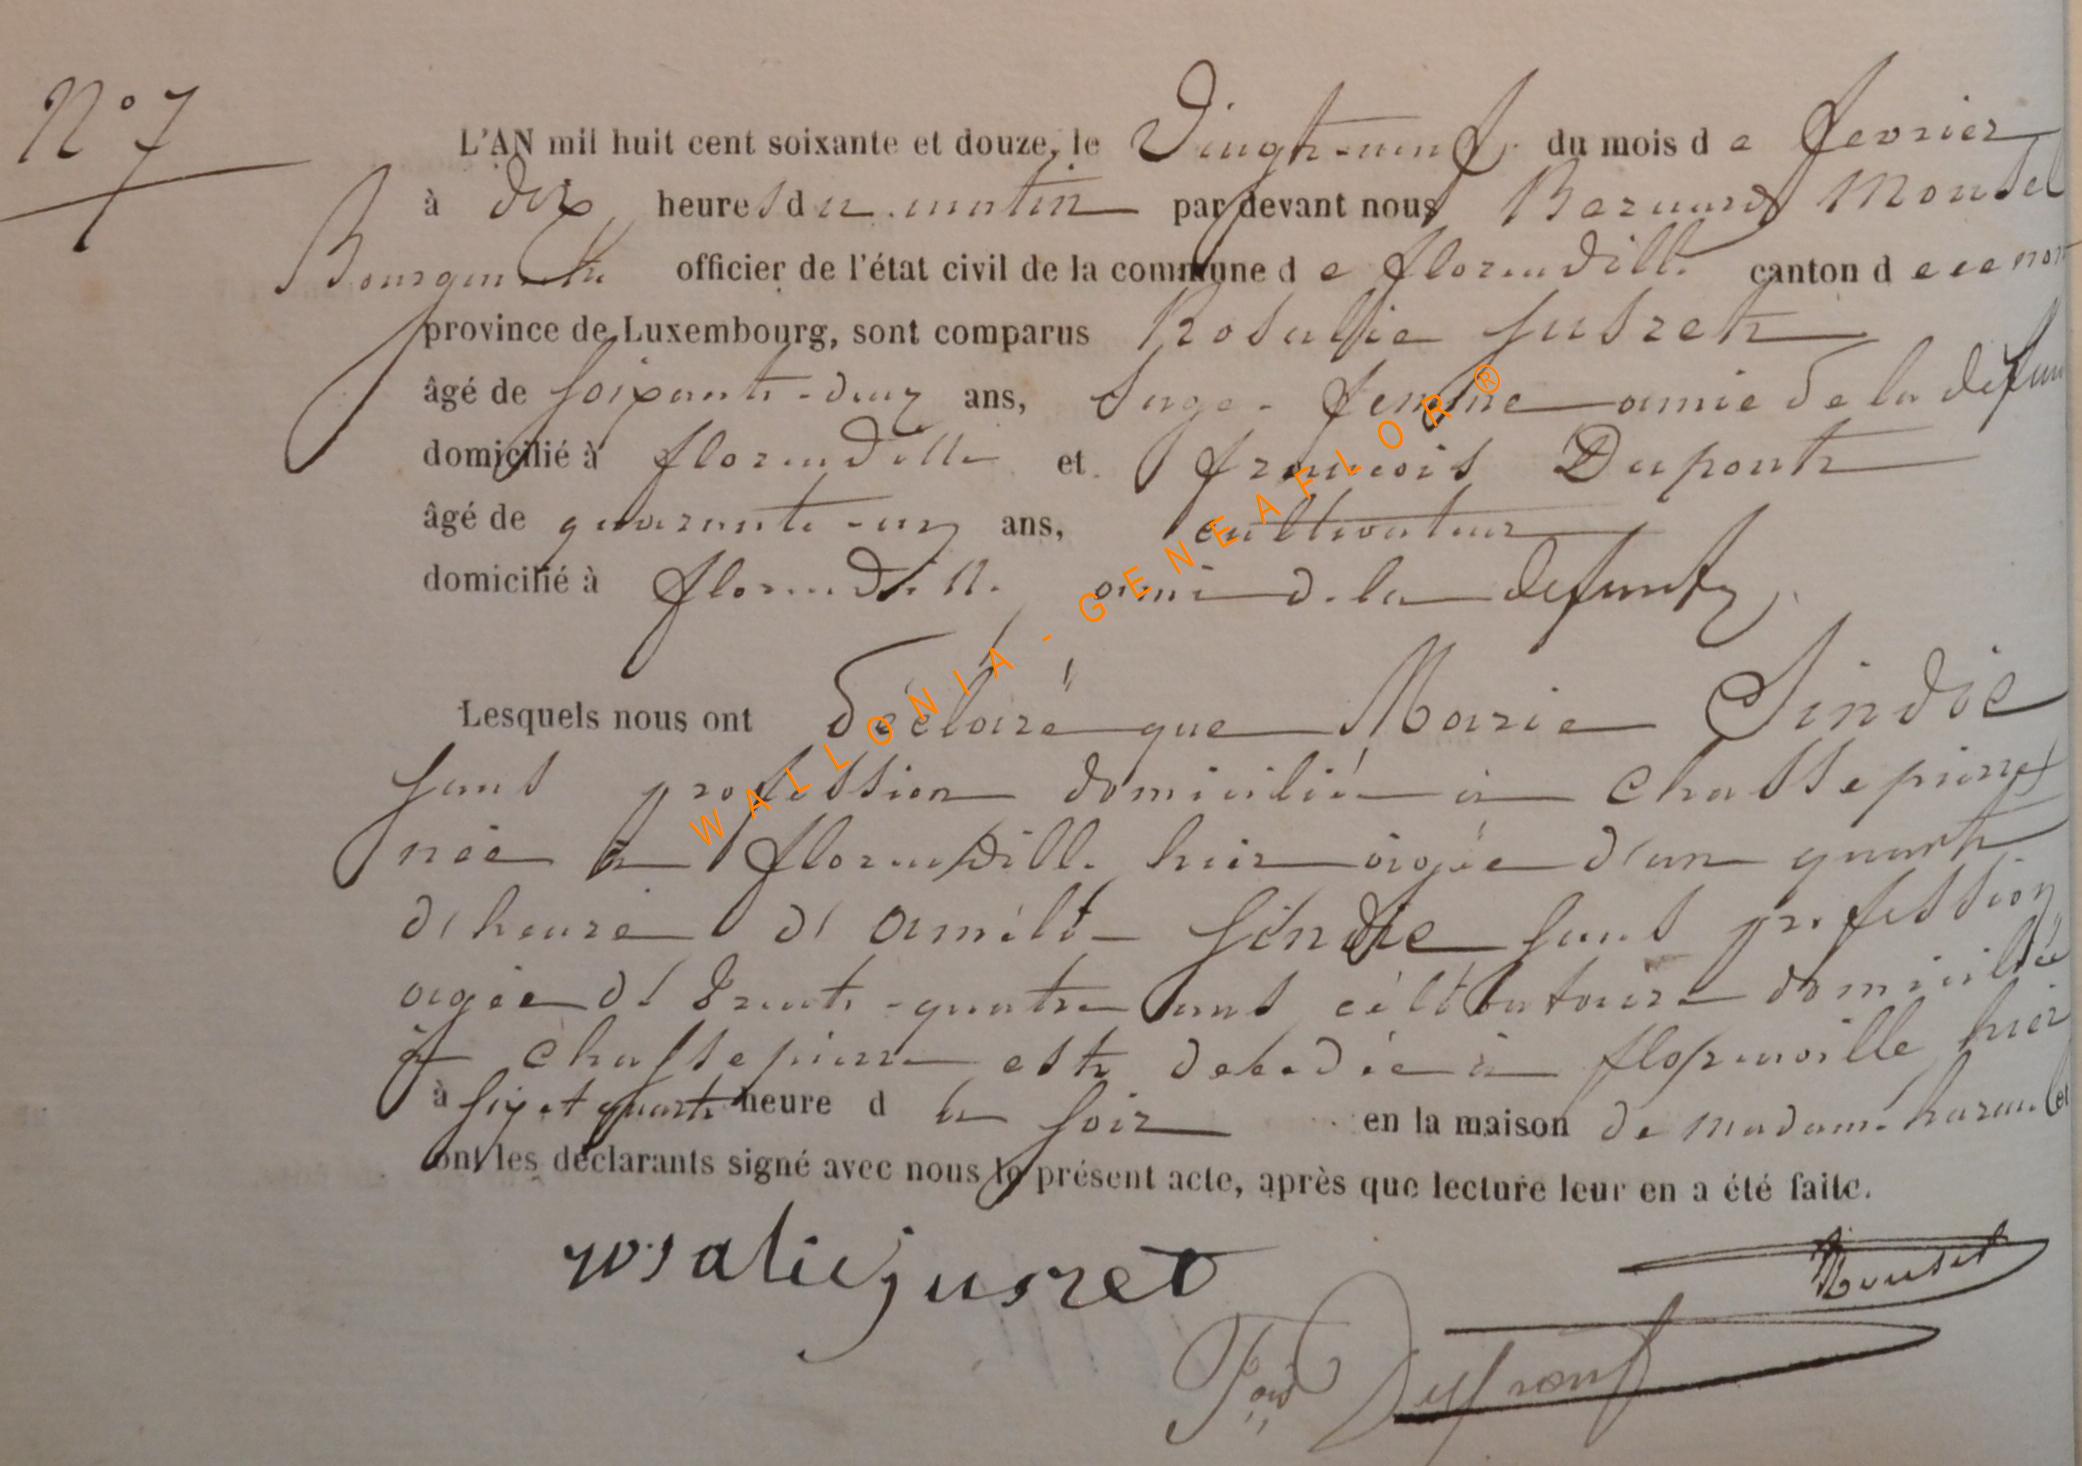 N° 7
L'AN mil huit cent soixante et douze, le Vingt-neuf du mois de fevrier
à dix heures du matin par devant nous Bernard Mousel
Bourgmestre officier de l'état civil de la commune de florenville canton de ce nom
province de Luxembourg, sont comparus Rosalie Jusret
âgé de soixante-deux ans, Sage-femme amie de la defun
domicilié à florenville et francois Dupont
âgé de quarante-un ans, cultivateur
domicilié à florenville ami de la defunte
Lesquels nous ont déclaré que Marie Sindic
sans profession domiciliée à chassepierre
née à florenville hier agée d'un quart
d'heure d'amélie Sindic sans profession
agée de trente-quatre ans célibataire domiciliée
à chassepierre est decedée à florenville hier
à six et quart heure du soir en la maison de madame et
ont les déclarants signé avec nous le présent acte, après que lecture leur en a été faite.
rosalie jusret
Mousel
Fois Dupont
WALLONIA-GENEAFLOR®